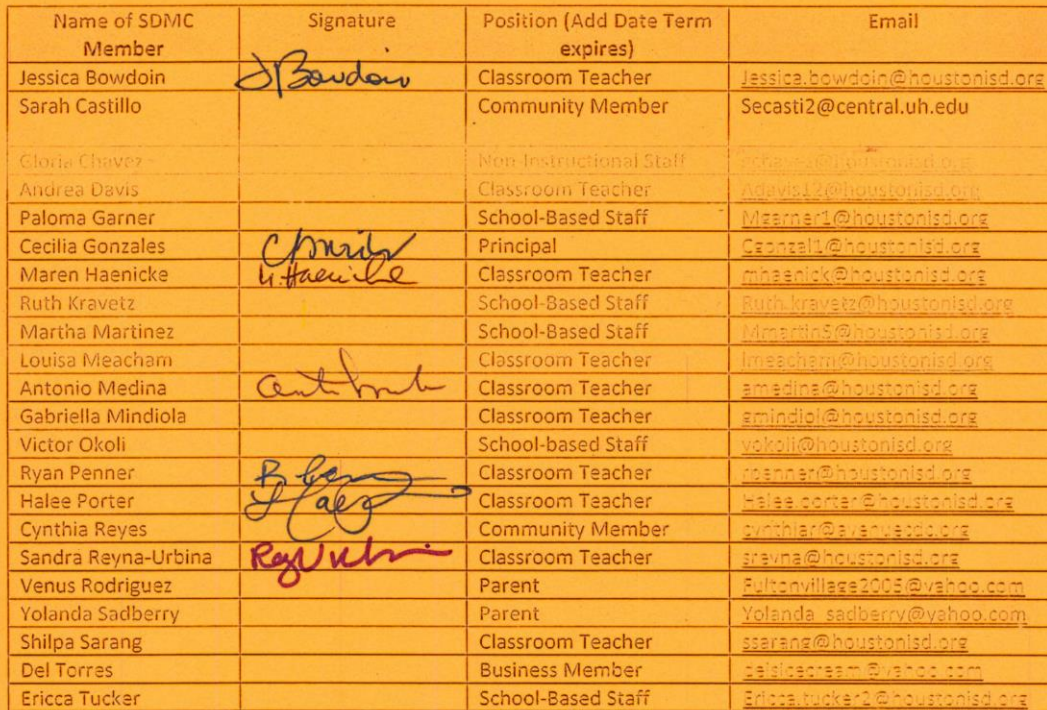 Name of SDMC Member Signature Position (Add Date Term expires) Email
Jessica Bowdoin JBowdoin Classroom Teacher Jessica.bowdoin@houstonisd.org
Sarah Castillo Community Member Secasti2@central.uh.edu
Gloria Chavez Non-Instructional Staff
Andrea Davis Classroom Teacher Adavis12@houstonisd.org
Paloma Garner School-Based Staff Mgarner1@houstonisd.org
Cecilia Gonzales Principal Cgonzal1@houstonisd.org
Maren Haenicke M. Haenicke Classroom Teacher mhaenick@houstonisd.org
Ruth Kravetz School-Based Staff Ruth.kravetz@houstonisd.org
Martha Martinez School-Based Staff Mmartin5@houstonisd.org
Louisa Meacham Classroom Teacher lmeacham@houstonisd.org
Antonio Medina Classroom Teacher amedina@houstonisd.org
Gabriella Mindiola Classroom Teacher gmindiol@houstonisd.org
Victor Okoli School-based Staff vokoli@houstonisd.org
Ryan Penner Classroom Teacher rpenner@houstonisd.org
Halee Porter Classroom Teacher Halee.porter@houstonisd.org
Cynthia Reyes Community Member cynthiar@avenuecdc.org
Sandra Reyna-Urbina Classroom Teacher sreyna@houstonisd.org
Venus Rodriguez Parent Fultonvillage2005@yahoo.com
Yolanda Sadberry Parent Yolanda_sadberry@yahoo.com
Shilpa Sarang Classroom Teacher ssarang@houstonisd.org
Del Torres Business Member delsicecream@yahoo.com
Ericca Tucker School-Based Staff Ericca.tucker2@houstonisd.org